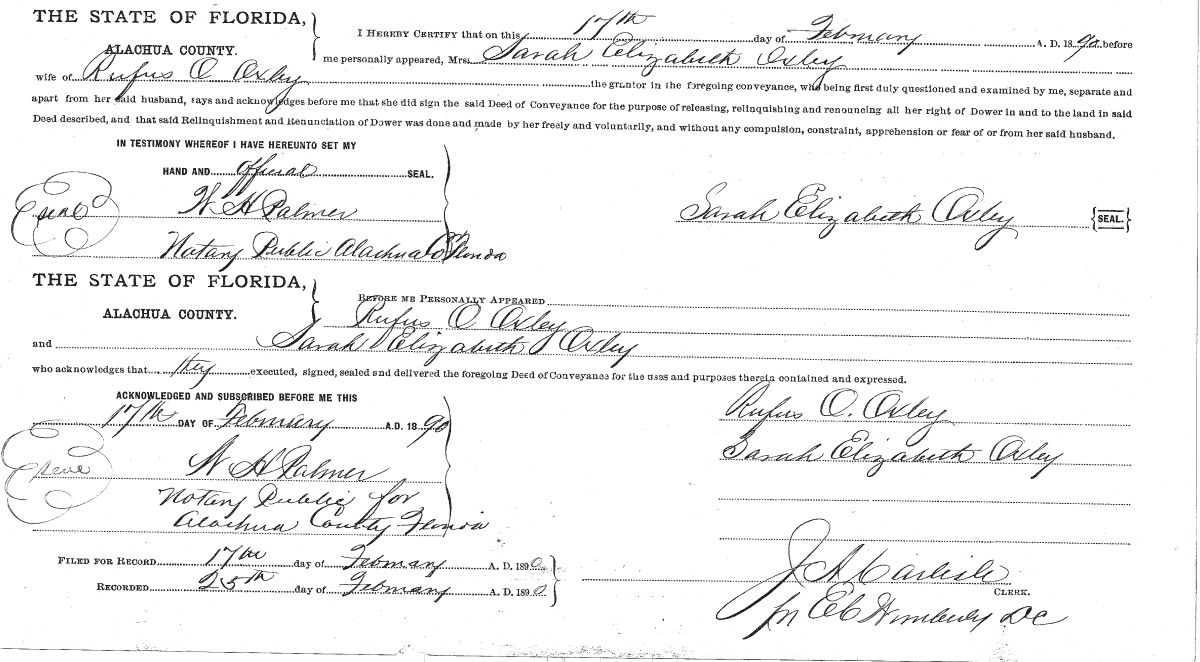 THE STATE OF FLORIDA,
ALACHUA COUNTY.
I HEREBY CERTIFY that on this 17th day of February A. D. 1890 before
me personally appeared, Mrs. Sarah Elizabeth Oxley
wife of Rufus O Oxley the grantor in the foregoing conveyance, who being first duly questioned and examined by me, separate and
apart from her said husband, says and acknowledges before me that she did sign the said Deed of Conveyance for the purpose of releasing, relinquishing and renouncing all her right of Dower in and to the land in said
Deed described, and that said Relinquishment and Renunciation of Dower was done and made by her freely and voluntarily, and without any compulsion, constraint, apprehension or fear of or from her said husband.
IN TESTIMONY WHEREOF I HAVE HEREUNTO SET MY
HAND AND official SEAL.
seal W H Palmer
Notary Public Alachua Co Florida
Sarah Elizabeth Oxley {SEAL.}
THE STATE OF FLORIDA,
ALACHUA COUNTY.
BEFORE ME PERSONALLY APPEARED
Rufus O Oxley
and Sarah Elizabeth Oxley
who acknowledges that they executed, signed, sealed and delivered the foregoing Deed of Conveyance for the uses and purposes therein contained and expressed.
ACKNOWLEDGED AND SUBSCRIBED BEFORE ME THIS
17th DAY OF February A.D. 1890
seal W H Palmer
Notary Public for
Alachua County Florida
Rufus O. Oxley
Sarah Elizabeth Oxley
FILED FOR RECORD 17th day of February A. D. 1890
RECORDED 25th day of February A. D. 1890
J A Carlisle
CLERK.
pr E C Wimberly DC